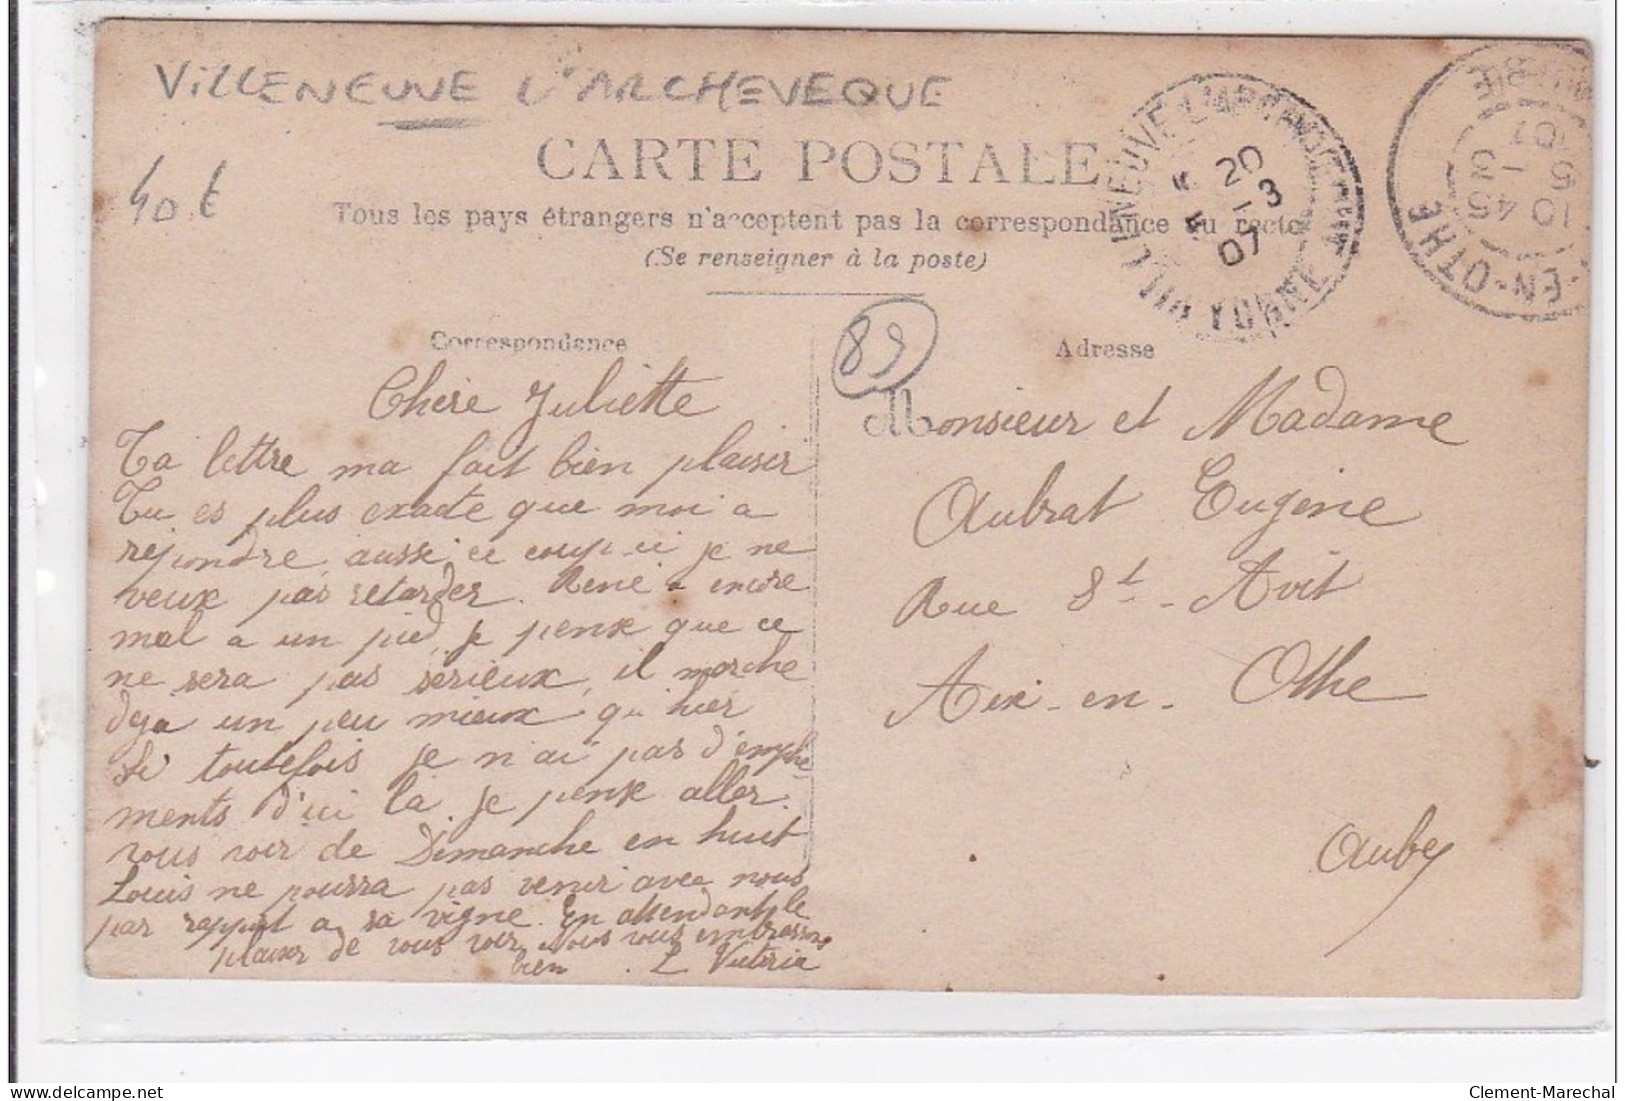 VILLENEUVE L'ARCHEVEQUE
40 €
CARTE POSTALE
Tous les pays étrangers n'acceptent pas la correspondance au recto
(Se renseigner à la poste)
VILLENEUVE-L'ARCHEVEQUE
20
3
07
YONNE
10 45
5 -3
07
-EN-OTHE
89
Correspondance
Chère Juliette
Ta lettre ma fait bien plaisir
Tu es plus exacte que moi a
repondre, aussi ce coup ci je ne
veux pas retarder. René a encore
mal a un pied, je pense que ce
ne sera pas sérieux, il marche
deja un peu mieux qu hier
Si toutefois je n'ai pas d'emphe
ments d'ici la je pense aller
vous voir de Dimanche en huit
Louis ne pourra pas venir avec nous
par rapport a sa vigne. En attendant le
plaisir de vous voir Nous vous embrassons
bien . L Victoria
Adresse
Monsieur et Madame
Aubrat Eugène
Rue St. Avit
Aix-en-Othe
Aube
Clement-Marechal